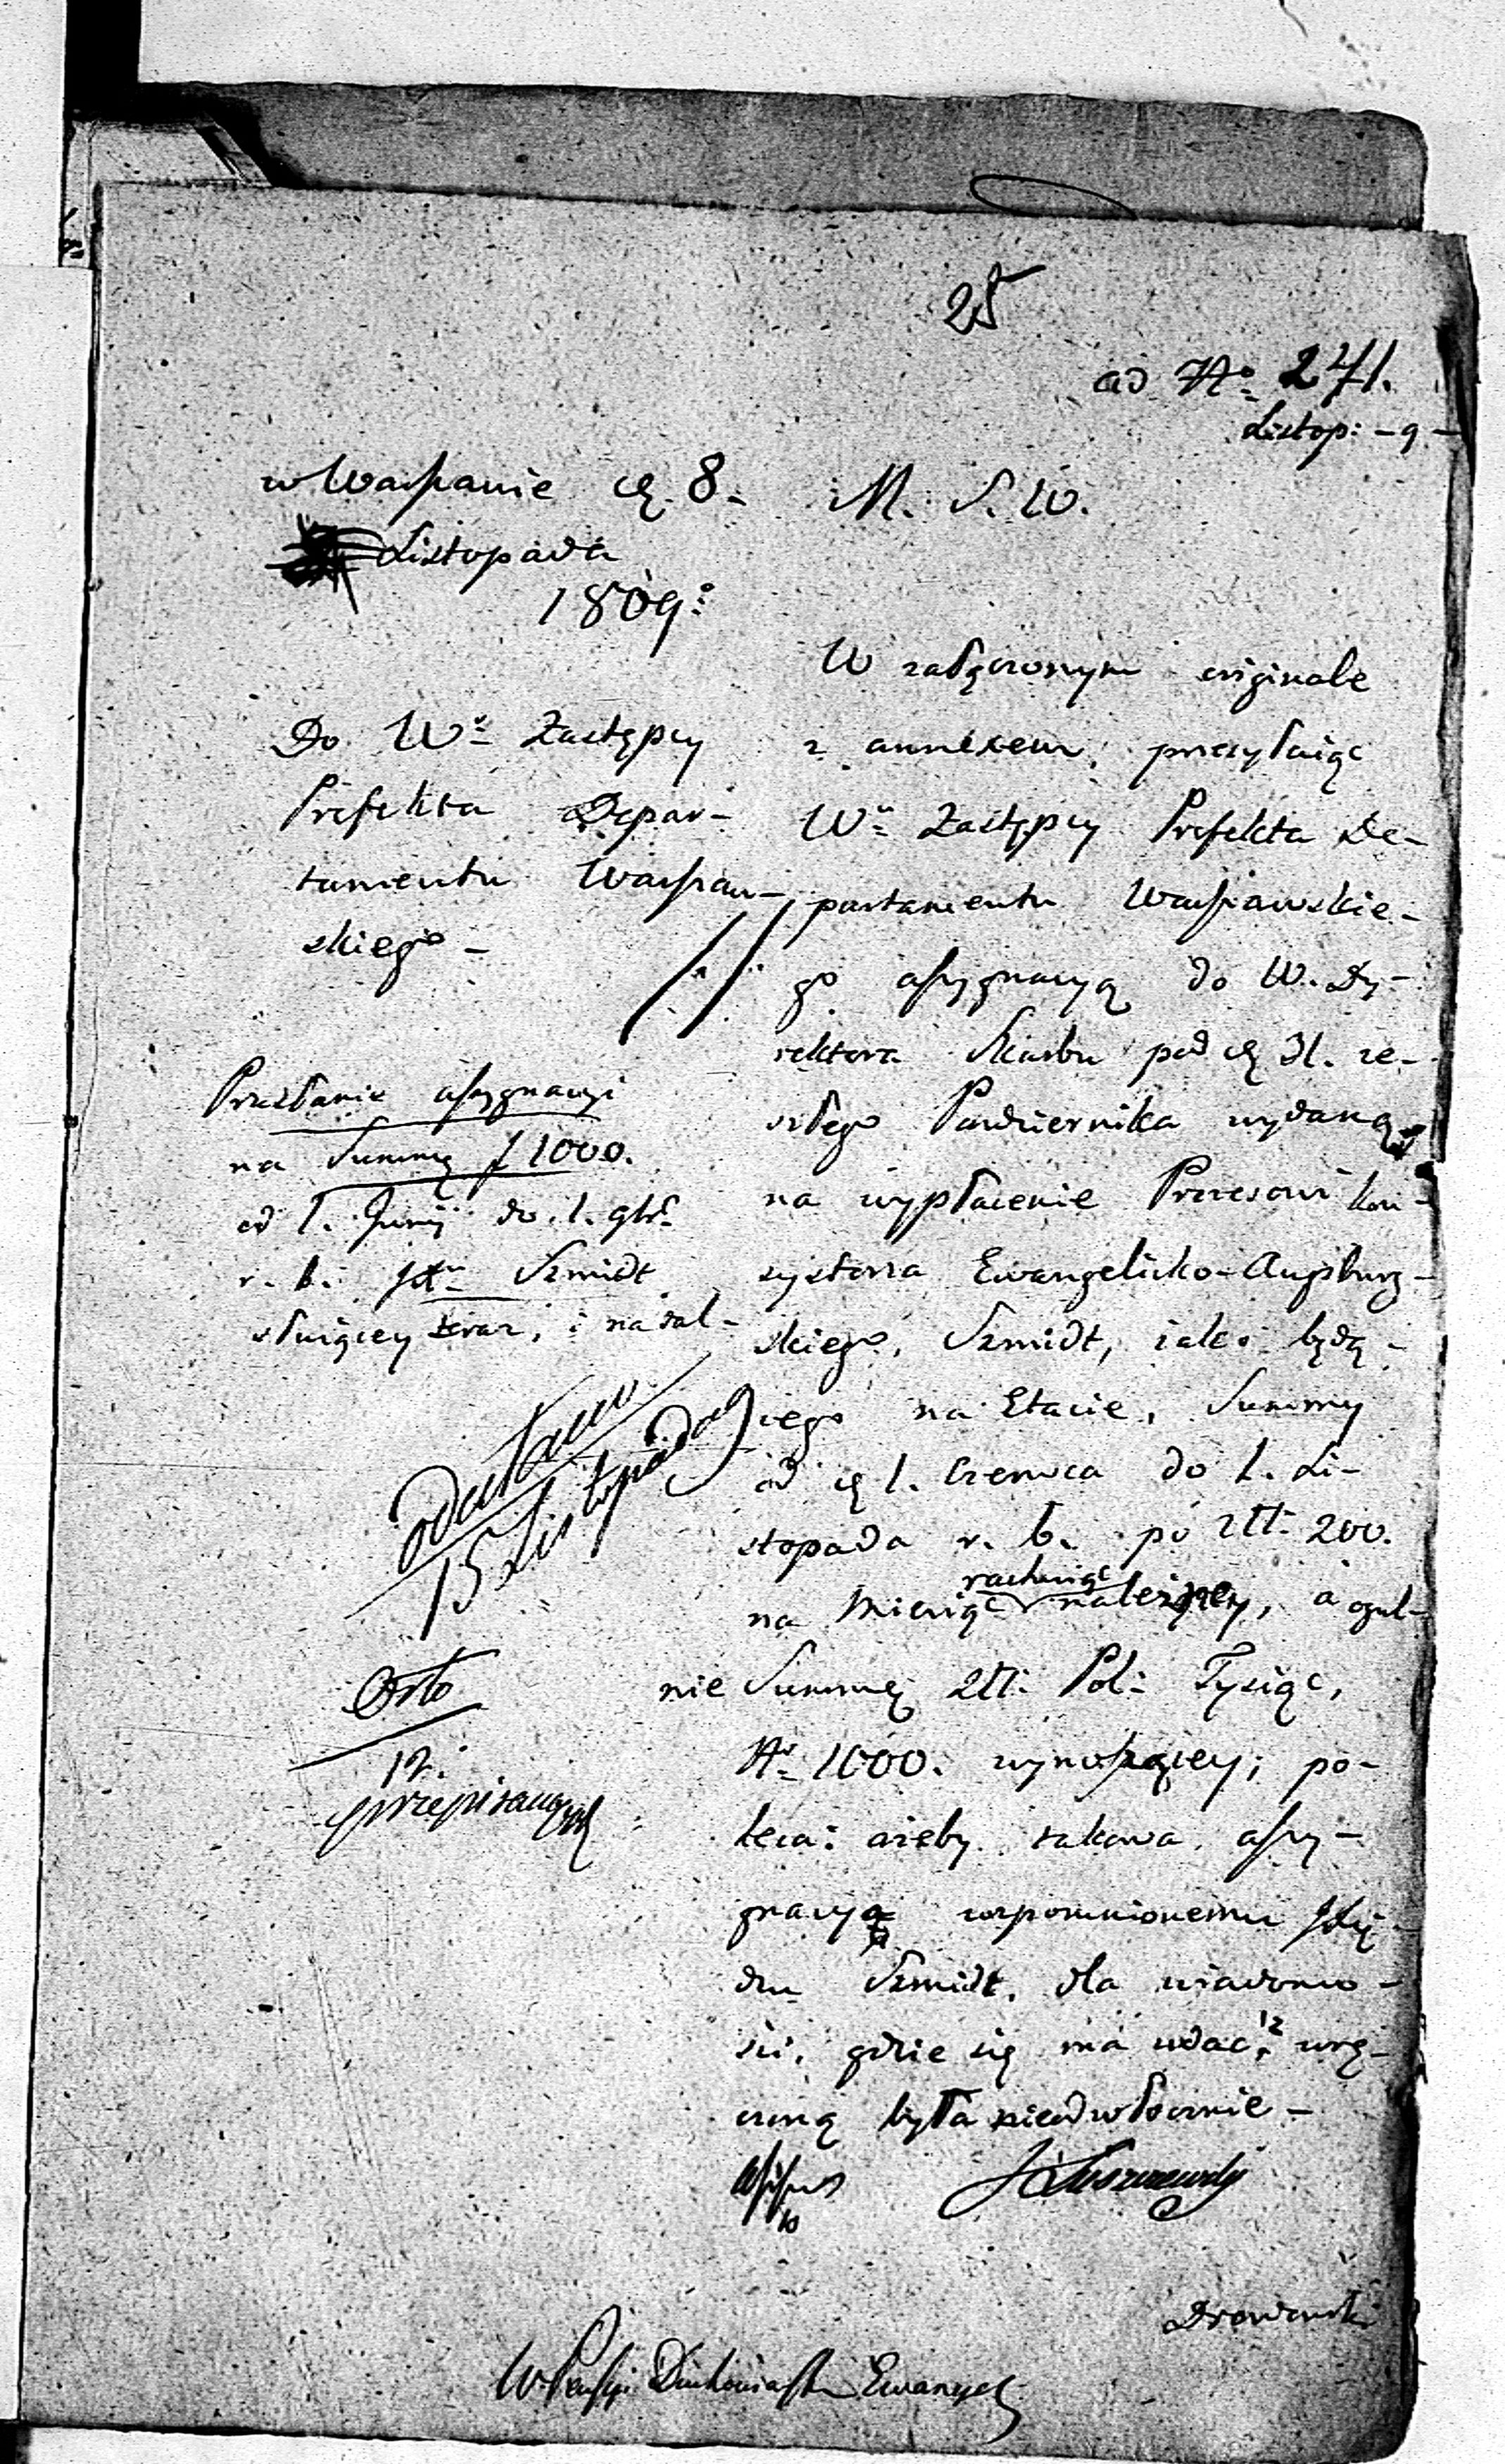 25
ad No 271.
Listop: - 9 -
w Warszawie d. 8.
Listopada
1809:
M. S. W.
Do Wo Zastępcy
Prefekta Depar-
tamentu Warszaw-
skiego -
Przesłanie assygnacyi
na Summę f 1000.
od 1. Junij do 1. 9br.
r. b. Szmidt
służącey
W załączonym originale
z annexem, przesyłaiąc
Wu Zastępcy Prefekta De-
partamentu Warszawskie-
go assygnacyą do W. Dy-
rektora Skarbu pod d. 31. ze-
szłego Pazdziernika wydaną
na wypłacenie Prezesowi kon-
systorza Ewangelicko-Augsburg-
skiego, Szmidt, iako będą-
cego na Etacie, Summy
od d. 1. Czerwca do 1. Li-
stopada r. b. po Złl: 200.
na Miesiąc rachuiąc należącey, a ogul-
nie Summę Złl: Pol: Tysiąc,
No 1000. wynoszącey; po-
leca: ażeby takowa assy-
gnacya wspomnionemu Xię-
dzu Szmidt, dla wiadomo-
ści, gdzie się ma udać, wrę-
czoną była niezwłocznie -
oddałem
15 Listopada
12.
przepisany
W Pensyi Duchowieństwa Ewangel